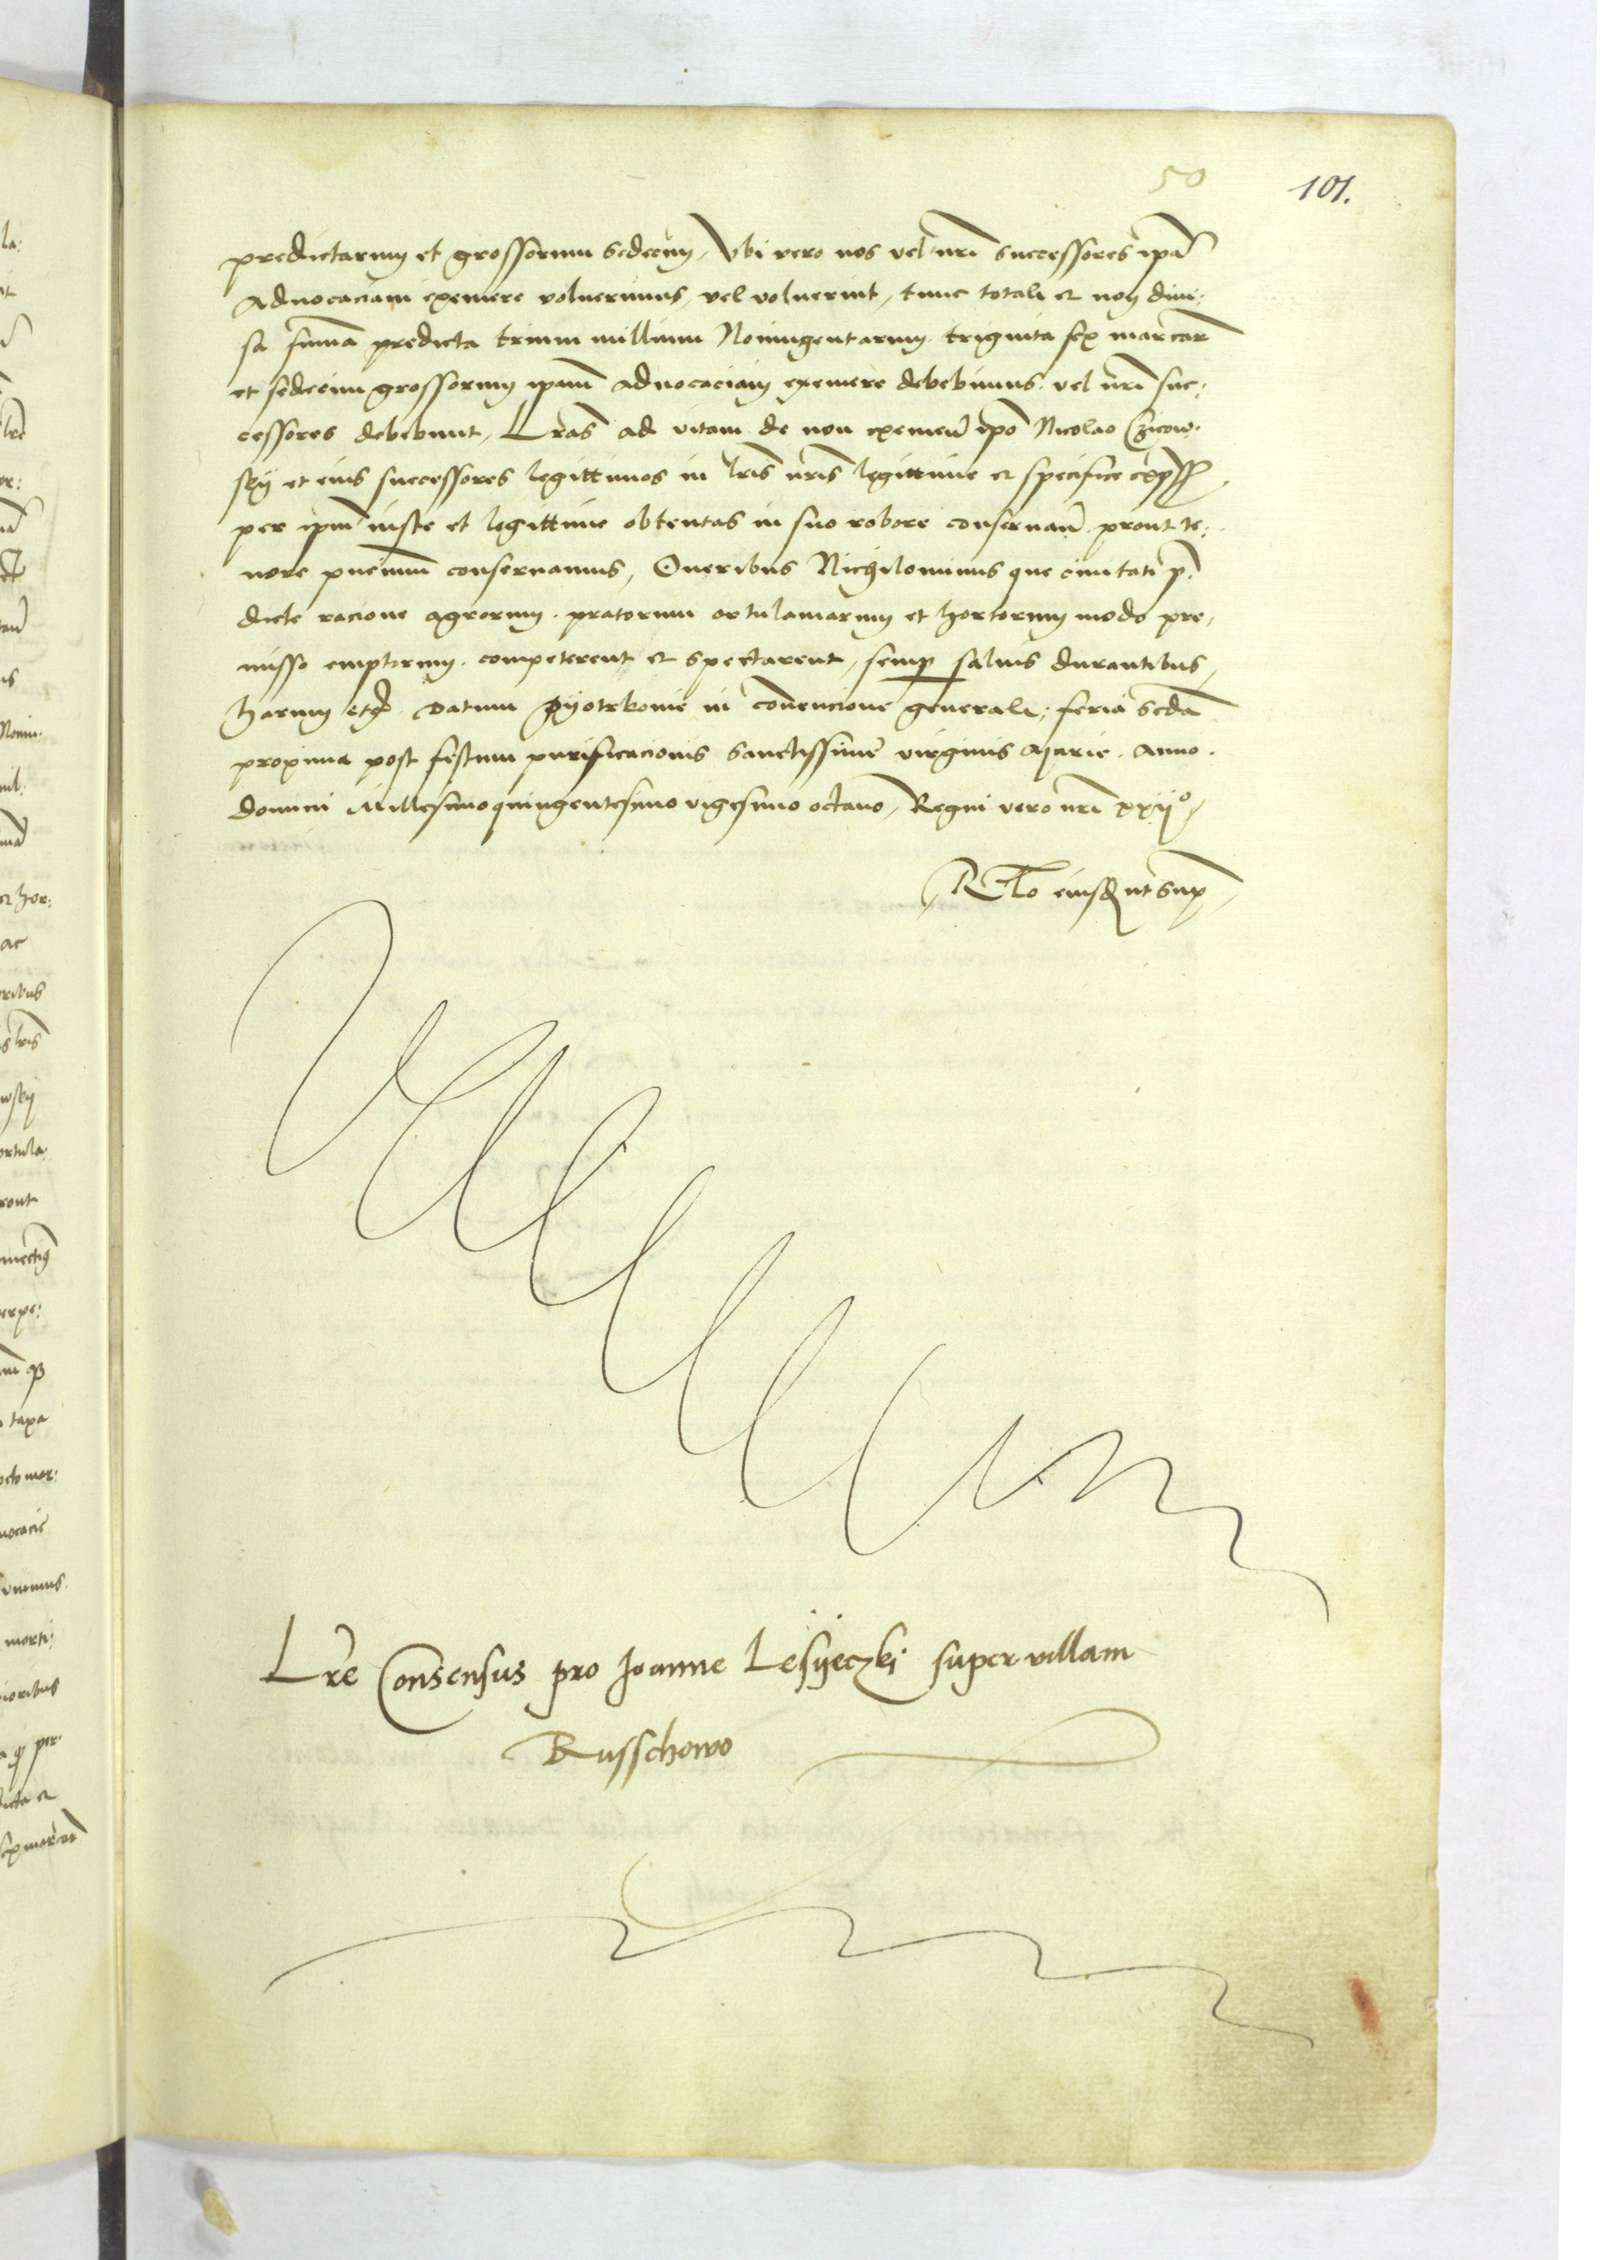 50 101.
predictarum et grossorum sedecim, Vbi vero nos vel nri successores ipam
Aduocaciam exemere voluerimus, vel voluerint, tunc totali et non diui:
sa suma predicta trium millium Noningentarum triginta sex marcar
et sedecim grossorum ipam aduocaciam exemere debebimus vel nri suc:
cessores debebunt, Lras ad vitam de non exemen ipo Nicolao Czicow:
skij et eius successores legittimos in lris nris legittime et specifice
per ipm iuste et legittime obtentas in suo robore conseruan prout te:
nore pncium conseruamus, Oneribus Nichilominus que ciuitati p
dicte racione agrorum pratorum ortulaniarum et hortorum modo pre
misso emptorum competerent et spectarent, semp saluis durantibus,
harum etc Datum Pyotrkouie in conuencione generali, feria scda
proxima post festum purificacionis sanctissime virginis Marie. Anno.
domini Millesimoquingentesimo vigesimo octauo, Regni vero nri xxij°,
Rlo eiusd ut sup
Lre Consensus pro Joanne Lesijeczkj super villam
Russchowo